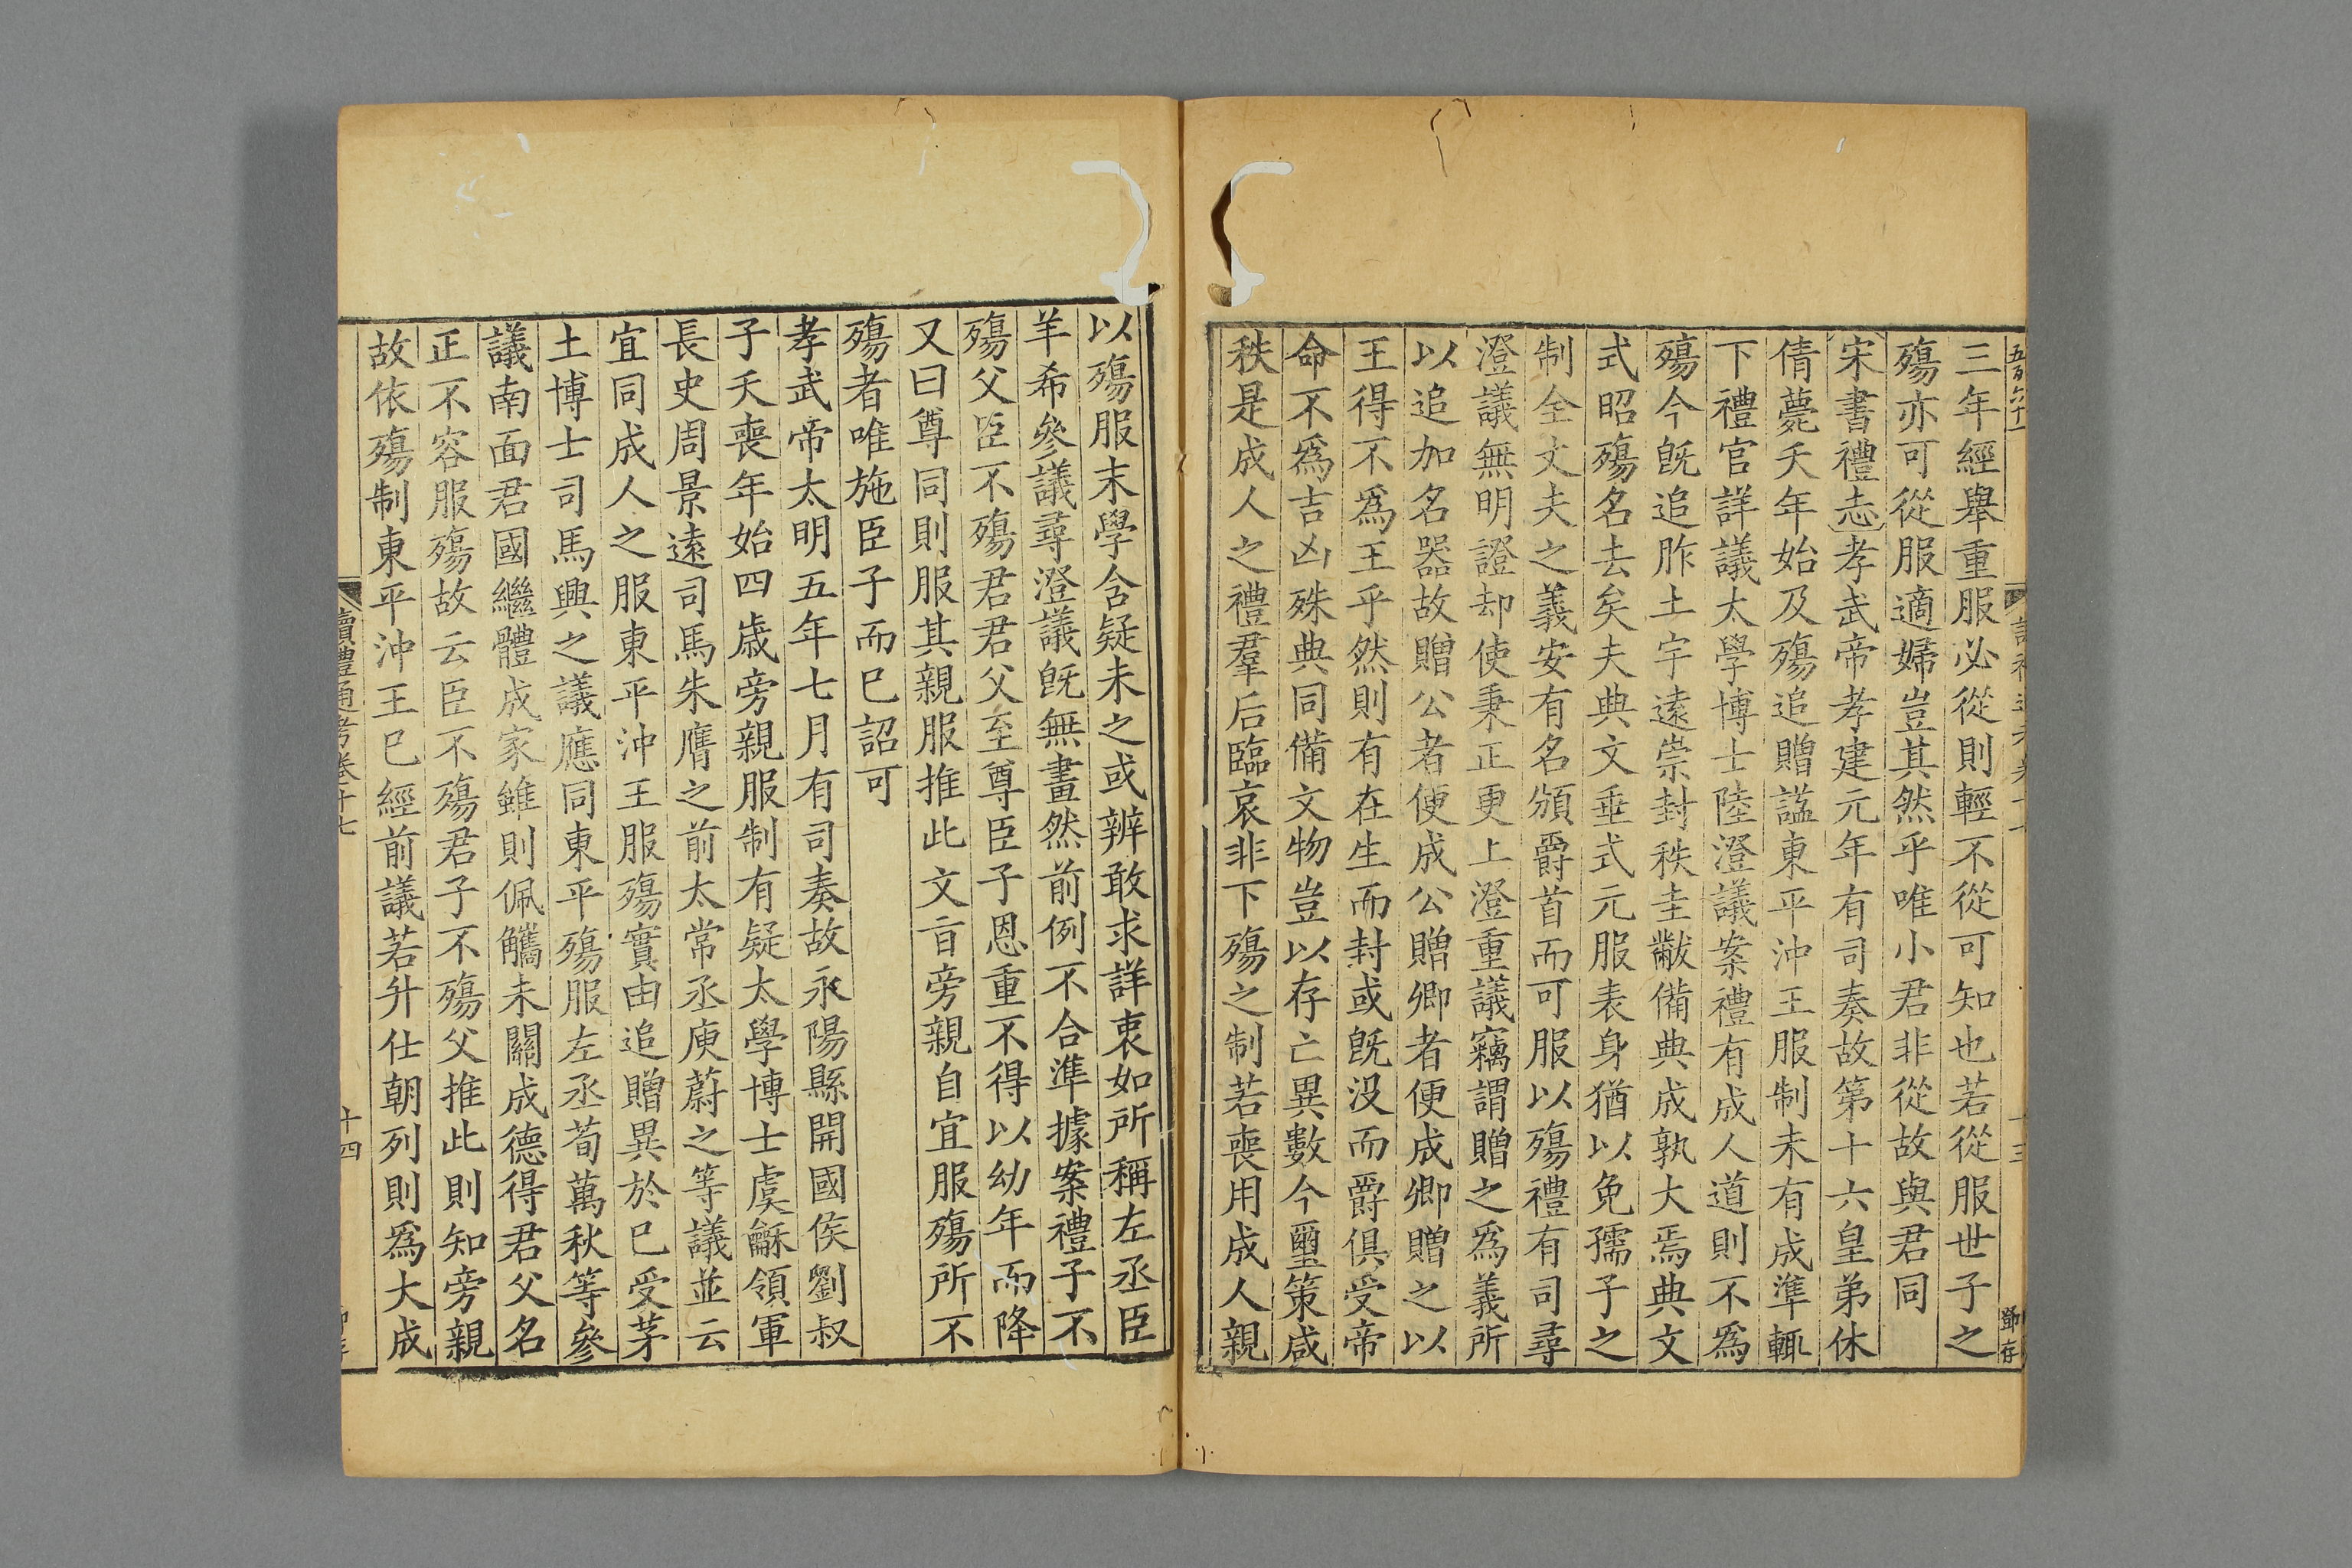 三年經舉重服必從則輕不從可知也若從服世子之
殤亦可從服適婦豈其然乎唯小君非從故與君同
宋書禮志孝武帝孝建元年有司奏故第十六皇弟休
倩薨夭年始及殤追贈諡東平沖王服制未有成準輒
下禮官詳議太學博士陸澄議案禮有成人道則不爲
殤今旣追胙土宇遠崇封秩圭黻備典成孰大焉典文
式昭殤名去矣夫典文垂式元服表身猶以免孺子之
制全丈夫之義安有名頒爵首而可服以殤禮有司尋
澄議無明證却使秉正更上澄重議竊謂贈之爲義所
以追加名器故贈公者便成公贈卿者便成卿贈之以
王得不爲王乎然則有在生而封或旣没而爵俱受帝
命不爲吉凶殊典同備文物豈以存亡異數今璽策咸
秩是成人之禮羣后臨哀非下殤之制若喪用成人親
以殤服末學含疑未之或辨敢求詳衷如所稱左丞臣
羊希參議尋澄議旣無畫然前例不合準據案禮子不
殤父臣不殤君君父至尊臣子恩重不得以幼年而降
又曰尊同則服其親服推此文旨旁親自宜服殤所不
殤者唯施臣子而已詔可
孝武帝太明五年七月有司奏故永陽縣開國侯劉叔
子夭喪年始四歲旁親服制有疑太學博士虞龢領軍
長史周景遠司馬朱膺之前太常丞庾蔚之等議並云
宜同成人之服東平沖王服殤實由追贈異於已受茅
土博士司馬興之議應同東平殤服左丞荀萬秋等參
議南面君國繼體成家雖則佩觿未關成德得君父名
正不容服殤故云臣不殤君子不殤父推此則知旁親
故依殤制東平沖王已經前議若升仕朝列則爲大成
讀禮通考卷十七
十四